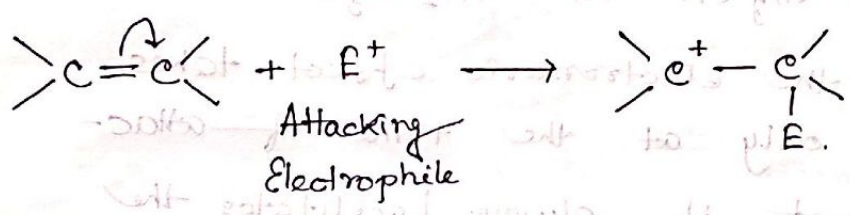 C=C + E+ → C+ — C
E.
Attacking
Electrophile